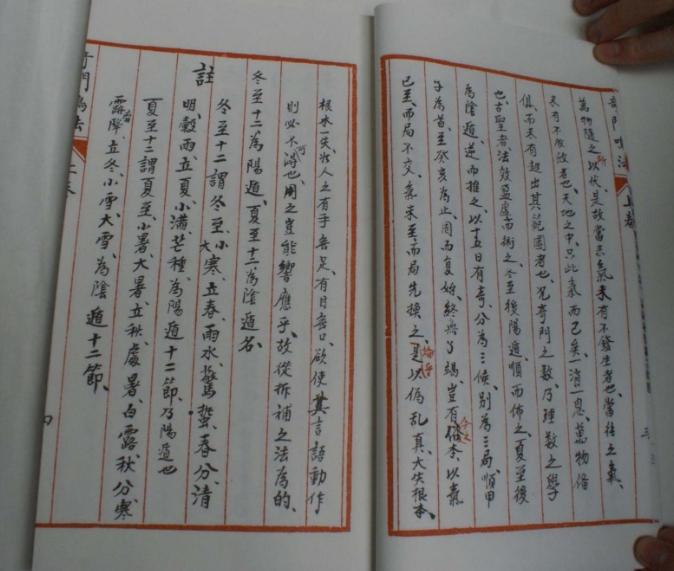 萬物隨之以伏是故當來之氣未有不發生者也當往之氣
所
未有不收敛者也天地之中只此氣而已矣消一息萬物俻
俱而未有超出其範圍者也况奇門之数乃理数之學
也古聖者法效盈虛而術之冬至後陽遁順而佈之夏至後
為陰遁逆而推之以十五日有奇分為三候别為三局順甲
子為首至癸亥為止周而复始終典了竭豈有俗本以氣
已至而局不交氣未至而局先换之是以偽乱真大失根本
根本一失於人之有手無足有目無口欲使其言語動作
則必不得也用之豈能響應乎故從拆補之法為的
可
冬至十二為陽遁夏至十二為陰遁名
註
冬至十二謂冬至小寒立春雨水驚蟄春分清
大
明穀雨立夏小滿芒種為陽遁十二節乃陽遁也
夏至十二謂夏至小暑大暑立秋處暑白露秋分寒
露降立冬小雪大雪為陰遁十二節
霜
四